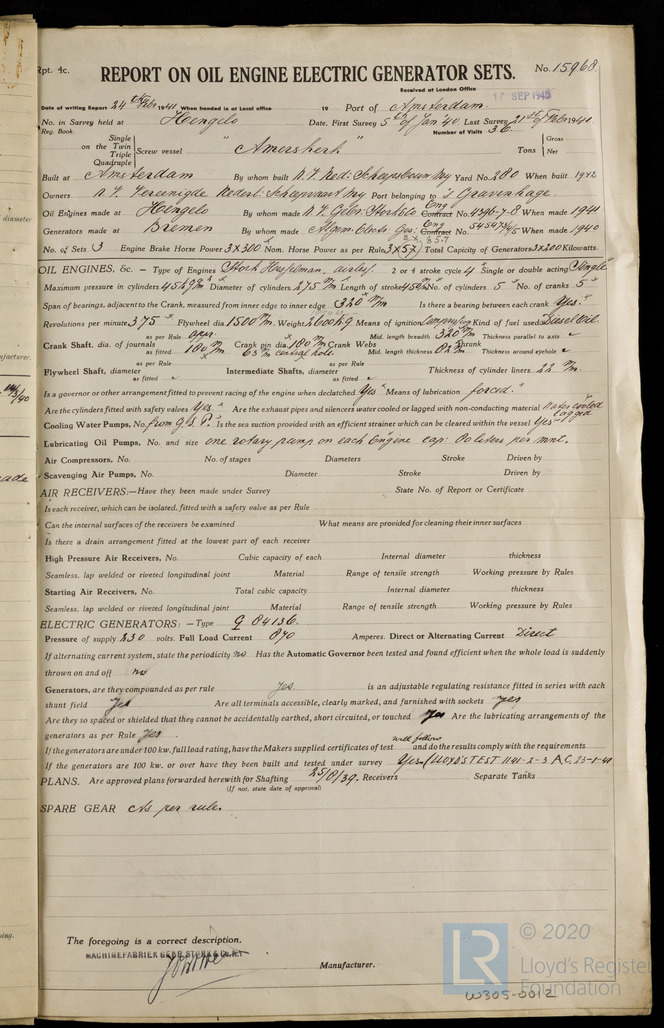 Rpt. 4c.
REPORT ON OIL ENGINE ELECTRIC GENERATOR SETS.
No. 15968
Received at London Office
17 SEP 1945
Date of writing Report 24th Feb 1941 When handed in at Local office 19 Port of Amsterdam.
No. in Survey held at Hengelo Date. First Survey 5th of Jan '40 Last Survey 21st of Feb 1941
Reg. Book. Number of Visits 36
Single
on the Twin
Triple
Quadruple
Screw vessel "Amerskerk" Tons Gross
Net
Built at Amsterdam By whom built N.V. Ned. Scheepsbouw My Yard No. 280 When built 1942
Owners N.V. Vereenigde Nederl. Scheepvaart My Port belonging to 's Gravenhage.
Oil Engines made at Hengelo By whom made N.V. Gebr. Stork & Co Eng Contract No. 4396-7-8 When made 1941
Generators made at Bremen By whom made Allgem. Elektr. Ges. Eng Contract No. When made 1940
No. of Sets 3 Engine Brake Horse Power 3x300 Nom. Horse Power as per Rule 3x57 Total Capacity of Generators 3x200 Kilowatts.
OIL ENGINES, &c. – Type of Engines Stork Hesselman, airless. 2 or 4 stroke cycle 4 Single or double acting Single
Maximum pressure in cylinders Diameter of cylinders 275 m/m Length of stroke No. of cylinders 5 No. of cranks 5
Span of bearings, adjacent to the Crank, measured from inner edge to inner edge 320 m/m Is there a bearing between each crank Yes.
Revolutions per minute 375 Flywheel dia. 1500 m/m Weight 2600 kg Means of ignition Compression Kind of fuel used Diesel Oil
Crank Shaft, dia. of journals as per Rule appr. as fitted 180 m/m Crank pin dia. 180 m/m Crank Webs Mid. length breadth 320 m/m Thickness parallel to axis
63 m/m central hole. Mid. length thickness 82 m/m shrunk Thickness around eyehole
Flywheel Shaft, diameter as per Rule as fitted Intermediate Shafts, diameter as per Rule as fitted Thickness of cylinder liners 22 m/m
Is a governor or other arrangement fitted to prevent racing of the engine when declutched Yes Means of lubrication forced.
Are the cylinders fitted with safety valves Yes Are the exhaust pipes and silencers water cooled or lagged with non-conducting material Water cooled lagged
Cooling Water Pumps, No. from G.S.P. Is the sea suction provided with an efficient strainer which can be cleared within the vessel Yes
Lubricating Oil Pumps, No. and size one rotary pump on each Engine cap: 80 liters per mnt.
Air Compressors, No. No. of stages Diameters Stroke Driven by
Scavenging Air Pumps, No. Diameter Stroke Driven by
AIR RECEIVERS:—Have they been made under Survey State No. of Report or Certificate
Is each receiver, which can be isolated, fitted with a safety valve as per Rule
Can the internal surfaces of the receivers be examined What means are provided for cleaning their inner surfaces
Is there a drain arrangement fitted at the lowest part of each receiver
High Pressure Air Receivers, No. Cubic capacity of each Internal diameter thickness
Seamless, lap welded or riveted longitudinal joint Material Range of tensile strength Working pressure by Rules
Starting Air Receivers, No. Total cubic capacity Internal diameter thickness
Seamless, lap welded or riveted longitudinal joint Material Range of tensile strength Working pressure by Rules
ELECTRIC GENERATORS:—Type G 84136.
Pressure of supply 230 volts. Full Load Current 870 Amperes. Direct or Alternating Current Direct
If alternating current system, state the periodicity no Has the Automatic Governor been tested and found efficient when the whole load is suddenly
thrown on and off no
Generators, are they compounded as per rule yes. is an adjustable regulating resistance fitted in series with each
shunt field Yes Are all terminals accessible, clearly marked, and furnished with sockets yes
Are they so spaced or shielded that they cannot be accidentally earthed, short circuited, or touched Yes Are the lubricating arrangements of the
generators as per Rule Yes
If the generators are under 100 kw. full load rating, have the Makers supplied certificates of test will follow and do the results comply with the requirements
If the generators are 100 kw. or over have they been built and tested under survey Yes (LLOYD'S TEST 1141-2-3 A.C. 23-1-41
PLANS. Are approved plans forwarded herewith for Shafting 25/8/39. Receivers Separate Tanks
(If not, state date of approval)
SPARE GEAR As per rule.
The foregoing is a correct description,
MACHINEFABRIEK GEBR. STORK & Co. N.V.
Manufacturer.
© 2020
LR
Lloyd's Register
Foundation
W305-0012